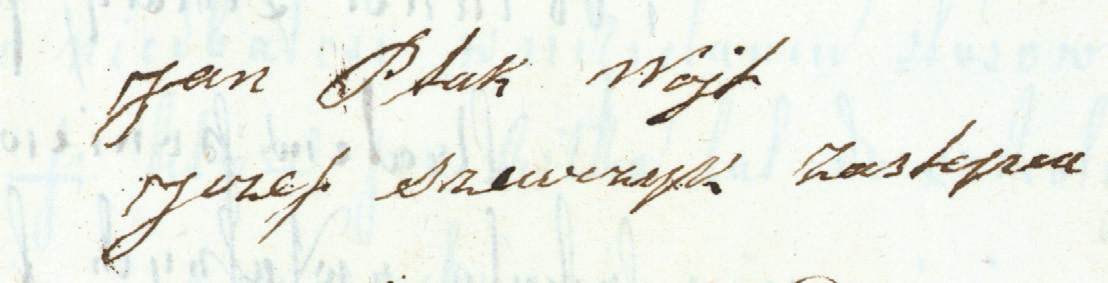 Jan Ptak Wojt
Jozef Szewczyk Zastepca